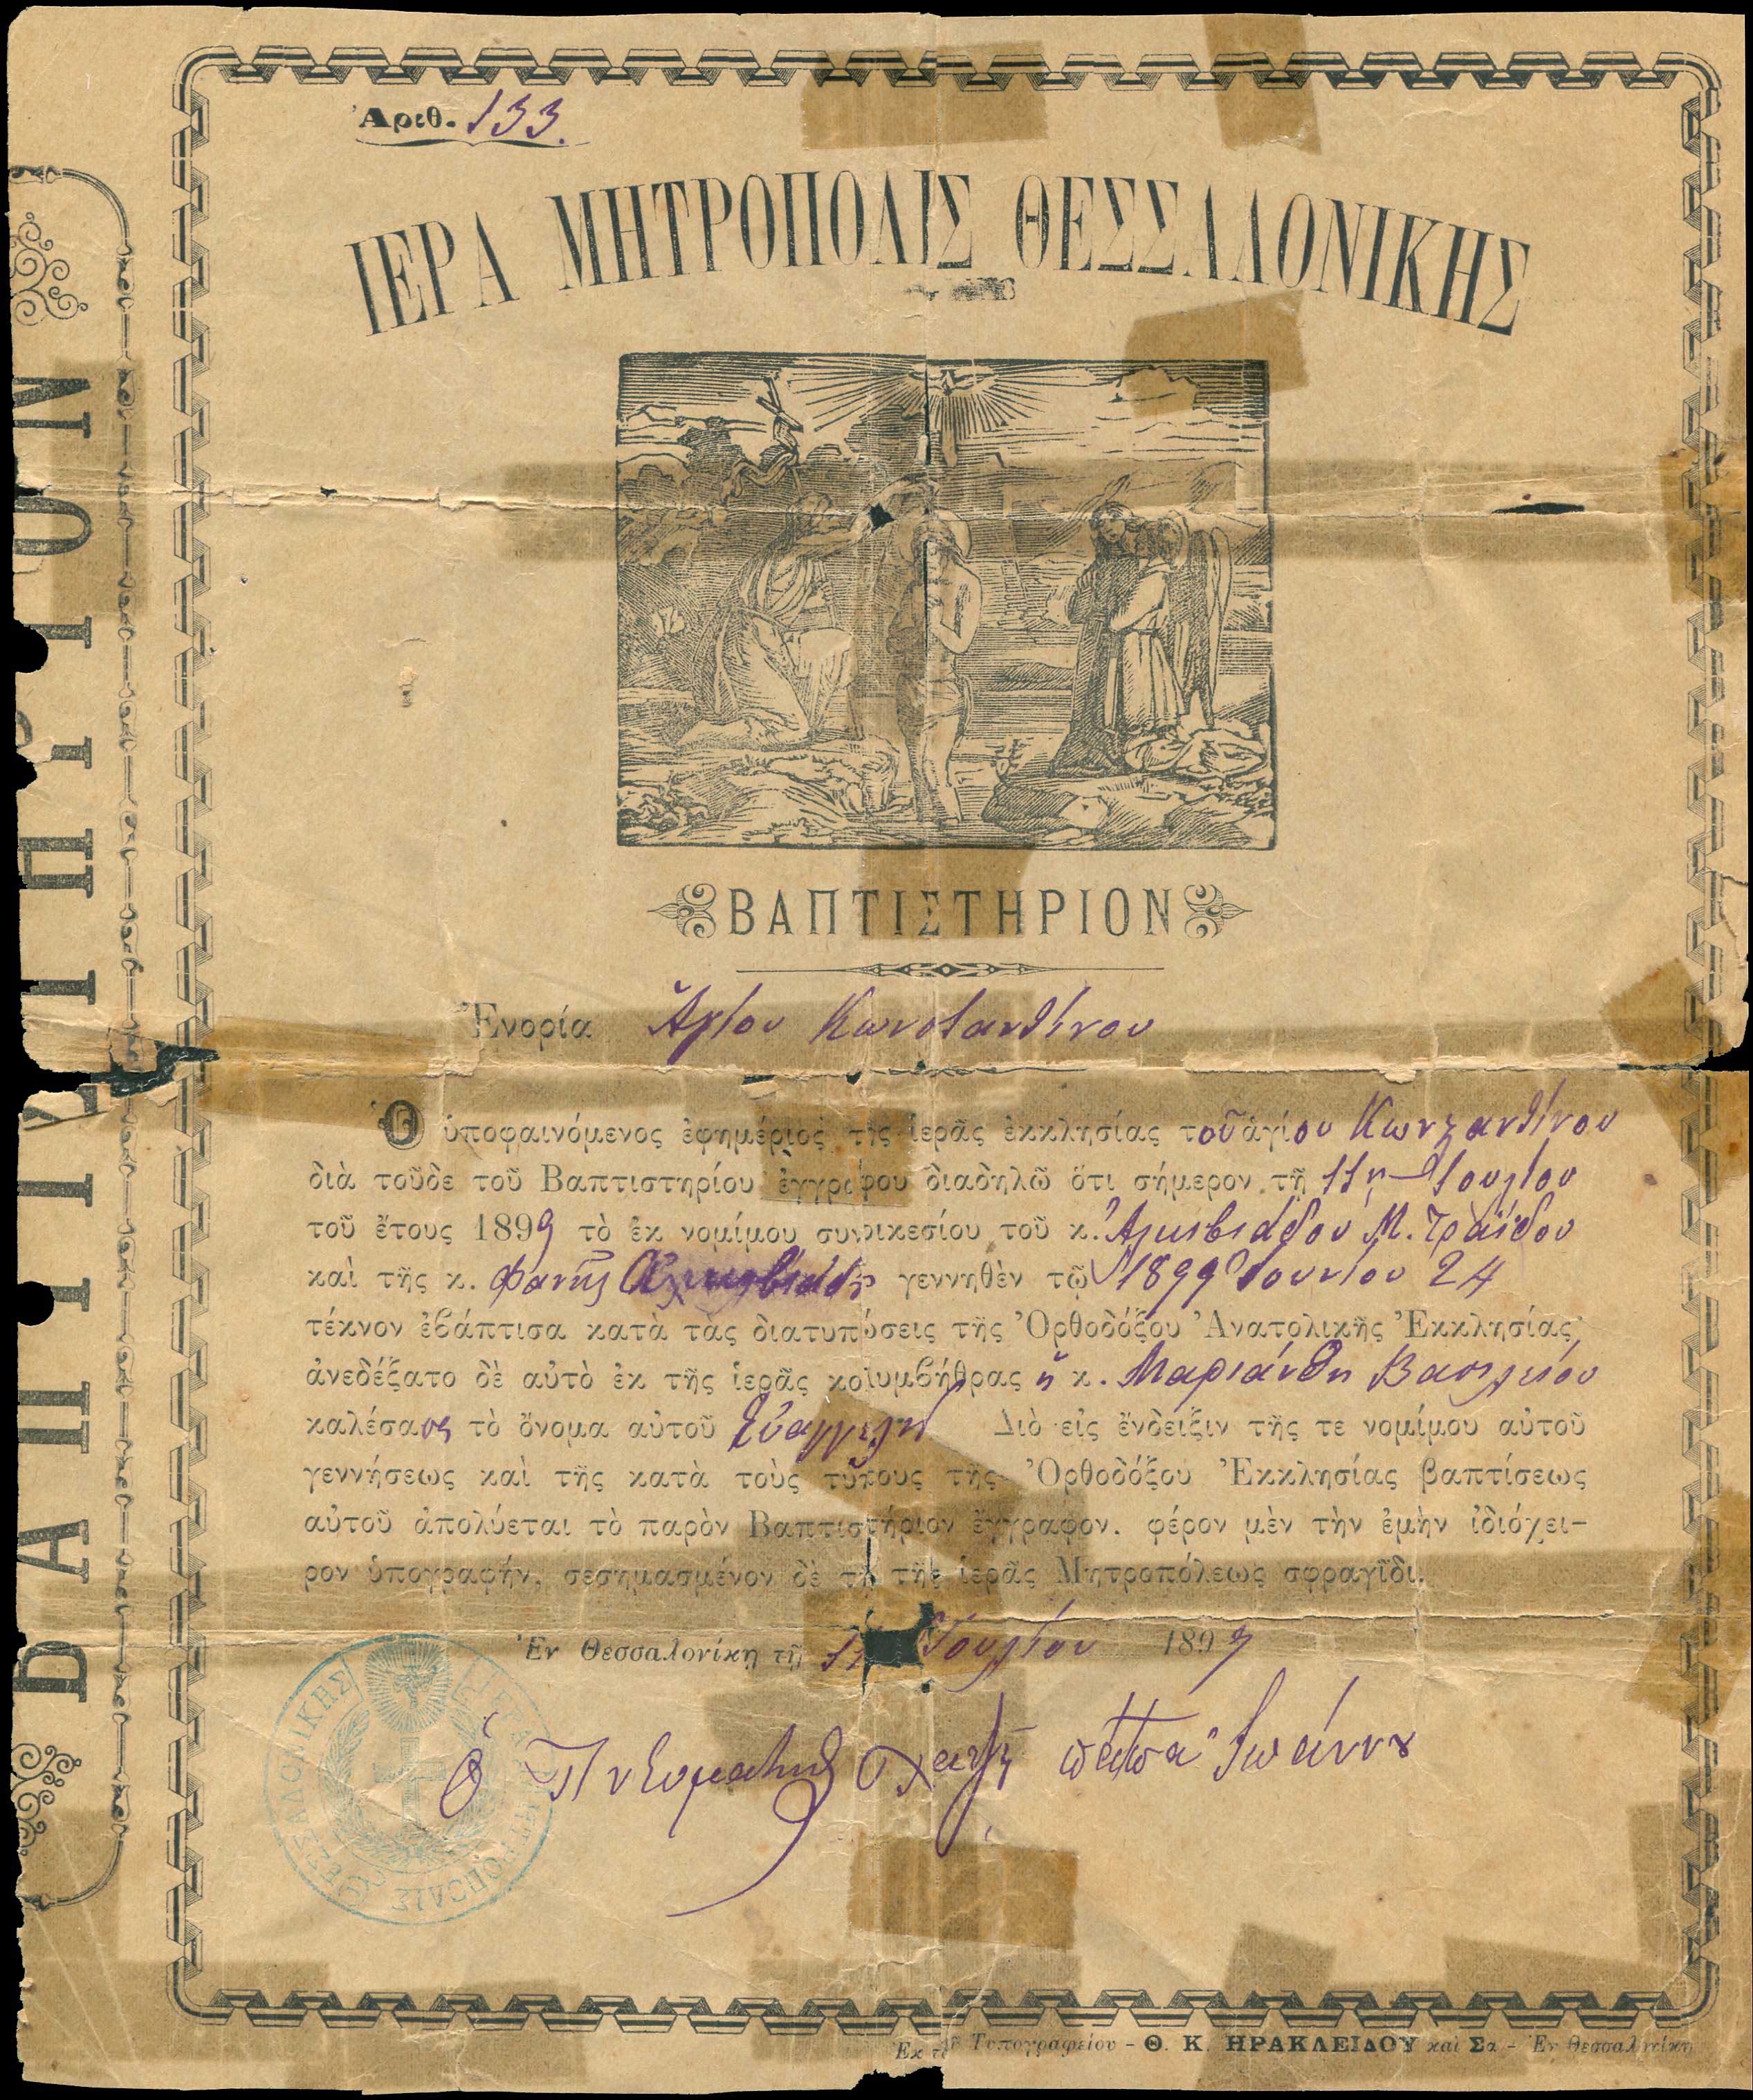 Ἀριθ. 133.
ΙΕΡΑ ΜΗΤΡΟΠΟΛΙΣ ΘΕΣΣΑΛΟΝΙΚΗΣ
ΒΑΠΤΙΣΤΗΡΙΟΝ
Ἐνορία Ἁγίου Κωνσταντίνου
Ὁ ὑποφαινόμενος ἐφημέριος τῆς ἱερᾶς ἐκκλησίας τοῦ ἁγίου Κωνσταντίνου
διὰ τοῦδε τοῦ Βαπτιστηρίου ἐγγράφου διαδηλῶ ὅτι σήμερον τῇ 11ῃ Ἰουλίου
τοῦ ἔτους 1899 τὸ ἐκ νομίμου συνοικεσίου τοῦ κ. Ἀλκιβιάδου Μ. Τραΐδου
καὶ τῆς κ. Φανῆς Ἀλκιβιάδου γεννηθὲν τῷ 1899 Ἰουνίου 24
τέκνον ἐβάπτισα κατὰ τὰς διατυπώσεις τῆς Ὀρθοδόξου Ἀνατολικῆς Ἐκκλησίας·
ἀνεδέξατο δὲ αὐτὸ ἐκ τῆς ἱερᾶς κολυμβήθρας ἡ κ. Μαριάνθη Βασιλείου
καλέσασα τὸ ὄνομα αὐτοῦ Εὐαγγελή Διὸ εἰς ἔνδειξιν τῆς τε νομίμου αὐτοῦ
γεννήσεως καὶ τῆς κατὰ τοὺς τύπους τῆς Ὀρθοδόξου Ἐκκλησίας βαπτίσεως
αὐτοῦ ἀπολύεται τὸ παρὸν Βαπτιστήριον ἔγγραφον, φέρον μὲν τὴν ἐμὴν ἰδιόχει-
ρον ὑπογραφήν, σεσημασμένον δὲ τῇ τῆς ἱερᾶς Μητροπόλεως σφραγῖδι.
Ἐν Θεσσαλονίκῃ τῇ 11 Ἰουλίου 1899
ὁ Πνευματικὸς Χατζῆ παπᾶ Ἰωάννου
ΙΕΡΑ ΜΗΤΡΟΠΟΛΙΣ ΘΕΣΣΑΛΟΝΙΚΗΣ
Ἐκ τοῦ Τυπογραφείου - Θ. Κ. ΗΡΑΚΛΕΙΔΟΥ καὶ Σα - Ἐν Θεσσαλονίκῃ
ΒΑΠΤΙΣΤΗΡΙΟΝ